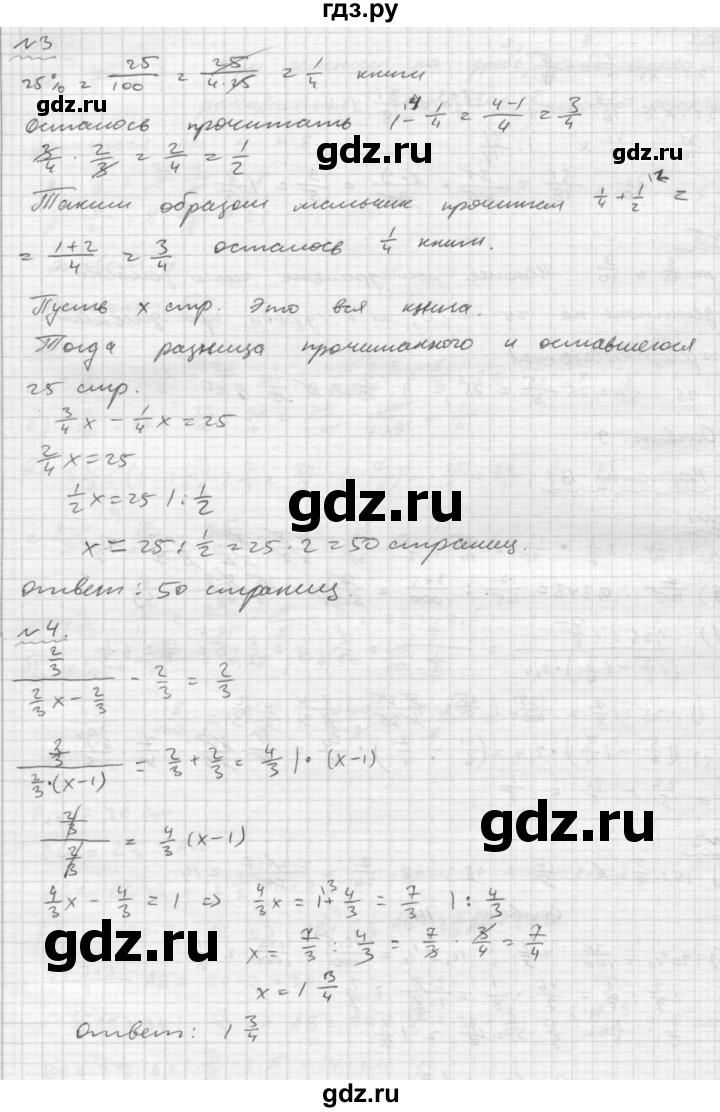 гдз.ру
№3
25% = 25/100 = 25/(4·25) = 1/4 книги
gdz.ru
Осталось прочитать 1 - 1/4 = (4-1)/4 = 3/4
3/4 · 2/3 = 2/4 = 1/2
gdz.ru
Таким образом мальчик прочитал 1/4 + 1/2 =
= (1+2)/4 = 3/4 осталось 1/4 книги.
Пусть x стр. это вся книга.
Тогда разница прочитанного и оставшегося
25 стр.
3/4 x - 1/4 x = 25
2/4 x = 25
1/2 x = 25 | : 1/2
gdz.ru
x = 25 : 1/2 = 25 · 2 = 50 страниц.
Ответ: 50 страниц.
№4.
(2/3)/(2/3 x - 2/3) - 2/3 = 2/3
(2/3)/(2/3·(x-1)) = 2/3 + 2/3 = 4/3 | · (x-1)
(2/3)/(2/3) = 4/3 (x-1)
gdz.ru
4/3 x - 4/3 = 1 => 4/3 x = 1 + 4/3 = 7/3 | : 4/3
gdz.ru
x = 7/3 : 4/3 = 7/3 · 3/4 = 7/4
x = 1 3/4
Ответ: 1 3/4
gdz.ru
gdz.ru